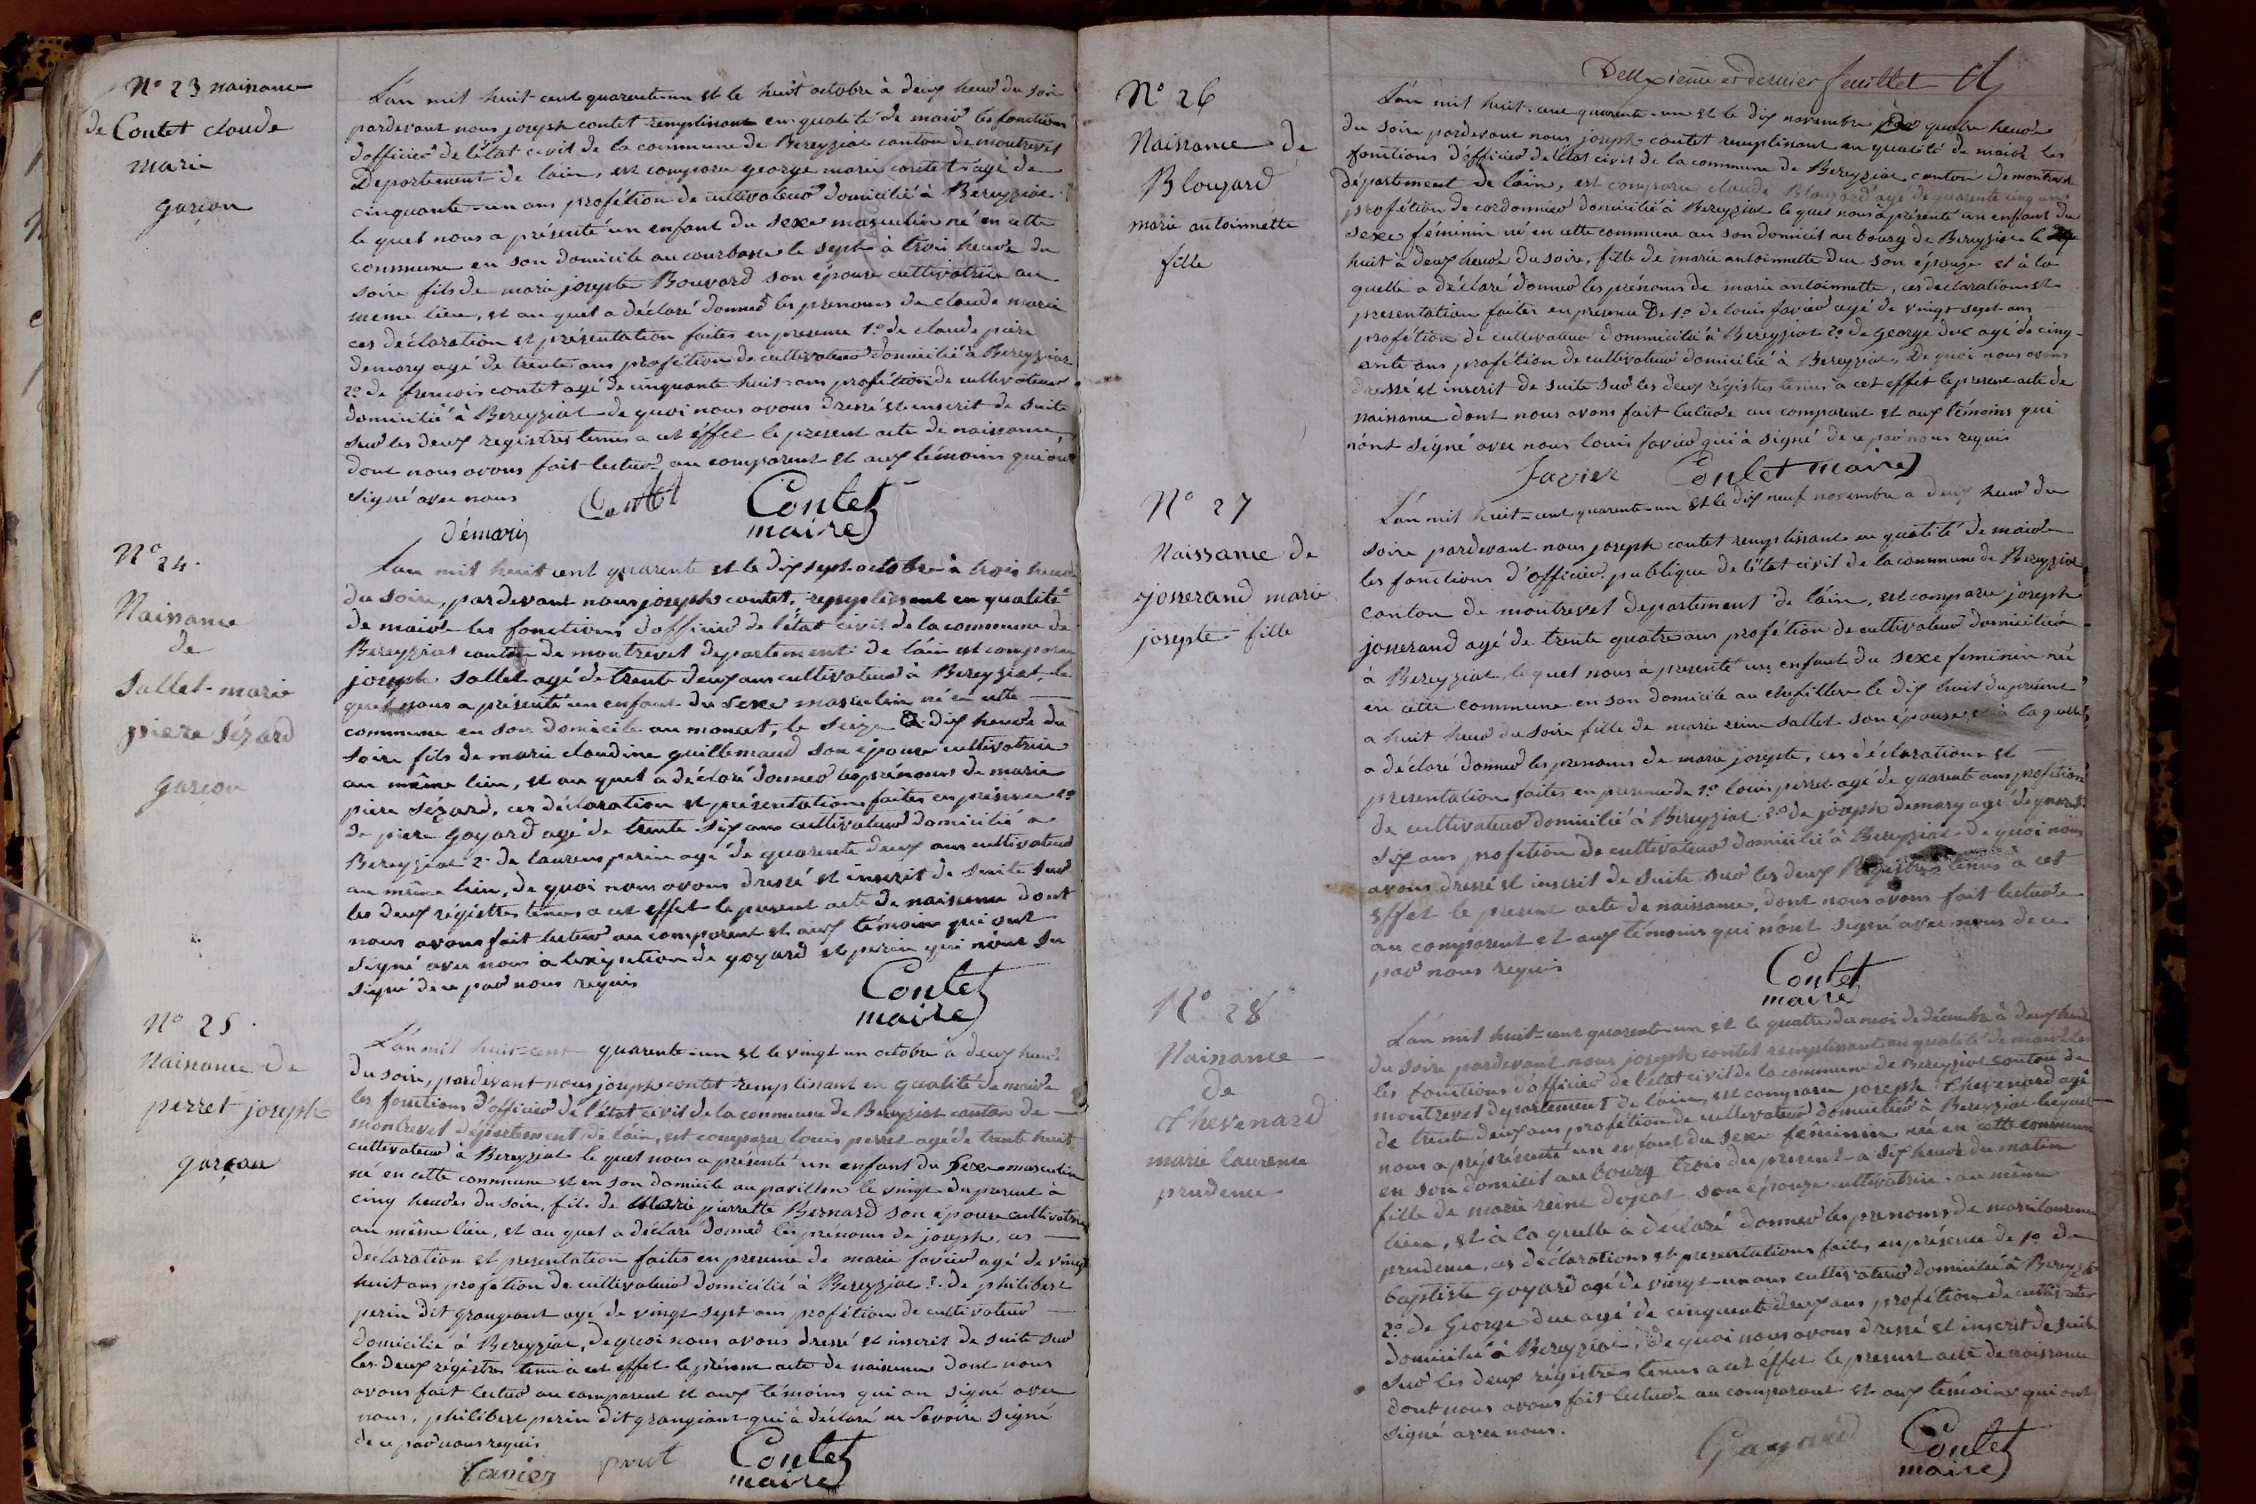 N° 23 naissance
de Contet claude
marie
garçon
L'an mil huit cent quarente-un et le huit octobre à deux heures du soir
pardevant nous joseph contet remplissant en qualité de maire les fonctions
d'officier de l'état civil de la commune de Bereyziat canton de montrevel
Departement de l'ain, est comparu george marie contet agé de
cinquante-un ans profétion de cultivateur domicilié à Bereyziat
le quel nous a présenté un enfant du sexe masculin né en cette
commune en son domicile au courbasse le sept à trois heure du
soire fils de marie josephte Bouvard son épouse cultivatrice au
meme lieu, et au quel a déclaré donner les prenoms de claude marie
ces déclaration et présentation faites en presence 1° de claude piere
demary agé de trente ans profétion de cultivateur domicilié à Bereyziat
2° de francois contet agé de cinquante huit ans profétion de cultivateur
domicilié à Bereyziat de quoi nous avons dressé et inscrit de suite
sur les deux registres tenus a cet éffet le present acte de naissance,
dont nous avons fait lecture au comparent et aux témoins qui ont
signé avec nous
Contet
Contet
maire
démaris
N° 24.
Naissance
de
Sallet marie
piere Sézard
garçon
L'an mil huit cent quarente et le dix sept octobre à trois heure
du soire, pardevant nous joseph contet, remplissent en qualité
de maire les fonctions d'officier de l'état civil de la commune de
Bereyziat canton de montrevel departement de l'ain est comparu
joseph Sallet agé de trente deux ans cultivateur à Bereyziat, le
quel nous a présenté un enfant du sexe masculin né en cette
commune en son domicile au moncet, le seize à dix heure du
soire fils de marie claudine guillemaud son épouse cultivatrice
au même lieu, et au quel a déclaré donner les prénoms de marie
piere Sézard, ces déclaration et présentation faites en présence 1°
de piere goyard agé de trente six ans cultivateur domicilié a
Bereyziat 2° de laurens perrin agé de quarente deux ans cultivateur
au même lieu, de quoi nous avons dressé et inscrit de suite sur
les deux régistres tenus a cet effet le present acte de naissance dont
nous avons fait lecture au comparent et aux témoins qui ont
signé avec nous à l'exception de goyard et perrin qui n'ont su
signé de ce par nous requis
Contet
maire
N° 25.
Naissance de
perret joseph
garçon
L'an mil huit-cent quarente-un et le vingt un octobre à deux heure
du soire, pardevant nous joseph contet remplissant en qualité de maire
les fonctions d'officier de l'état civil de la commune de Bereyziat canton de
montrevel département de l'ain, est comparu louis perret agé de trente huit
cultivateur à Bereyziat le quel nous a présenté un enfant du sexe masculin
né en cette commune et en son domicile au pavillon le vingt du present à
cinq heures du soire, fils de marie pierrette Bernard son épouse cultivatrice
au même lieu, et au quel a déclaré donner les prénoms de joseph, ces
declaration et presentation faites en presence de marie favier agé de vingt
huit ans profétion de cultivateur domicilié à Bereyziat 2° de philibert
perin dit grangeant agé de vingt sept ans profétion de cultivateur
domicilié à Bereyziat, de quoi nous avons dressé et inscrit de suite sur
les deux régistres tenu à cet effet le présent acte de naissance dont nous
avons fait lecture au comparent et aux témoins qui on signé avec
nous, philibert perin dit grangeant qui à déclaré ne savoir signé
de ce par nous requis
favier
Contet
maire
Deuxieme et dernier feuillet
N° 26
Naissance de
Blouzard
marie antoinnette
fille
L'an mil huit-cent quarente-un et le dix novembre à quatre heure
du soire pardevant nous joseph contet remplissant en qualité de maire les
fonctions d'officier de l'état civil de la commune de Bereyziat canton de montrevel
département de l'ain, est comparu claude Blouzard agé de quarente cinq ans
profétion de cordonnier domicilié à Bereyziat le quel nous à présenté un enfant du
sexe féminin né en cette commune au son domicil au bourg de Bereyziat le
huit à deux heure du soire, fille de marie antoinnette duc son épouze et à la
quelle a déclaré donner les prénoms de marie antoinnette, ces declaration et
presentation faites en presence De 1° de louis favier agé de vingt sept ans
profétion de cultivateur dommicilié à Bereyziat 2° de george duc agé de cinq-
ante ans profétion de cultivateur domicilié à Bereyziat, De quoi nous avons
dressé et inscrit de suite sur les deux régistres tenus à cet effet le present acte de
naissance dont nous avons fait lecture au comparent et aux témoins qui
n'ont signé avec nous louis favier qui à signé de ce par nous requis
favier
Contet maire
N° 27
Naissance de
josserand marie
josepte fille
L'an mil huit-cent quarente-un et le dix neuf novembre a deux heure du
soire pardevant nous joseph contet remplissant en qualité de maire
les fonctions d'officier publique de l'état civil de la commune de Bereyziat
canton de montrevel departement de l'ain, est comparu joseph
josserand agé de trente quatre ans profétion de cultivateur domicilié
à Bereyziat, le quel nous à presenté un enfant du sexe feminin né
en cette commune en son domicile au le dix huit du présent
a huit heure du soire fille de marie reine sallet son épouse, et à la quelle
a déclaré donner les prenoms de marie josepte, ces déclaration et
presentation faites en presence de 1° louis perret agé de quarente ans profétion
de cultivateur domicilié à Bereyziat 2° de joseph demary agé de quarente
six ans profétion de cultivateur domicilié à Bereyziat de quoi nous
avons dressé et inscrit de suite sur les deux Régistres tenus à cet
effet le present acte de naissance, dont nous avons fait lecture
au comparent et aux témoins qui n'ont signé avec nous de ce
par nous requis
Contet
maire
N° 28
Naissance
de
Chevenard
marie laurence
prudence
L'an mil huit-cent quarente-un et le quatre du moi de décembre à deux heure
du soire pardevant nous joseph contet remplissant en qualité de maire
les fonctions d'officier de l'état civil de la commune de Bereyziat canton de
montrevel departement de l'ain, est comparu joseph Chevenard agé
de trente deux ans profétion de cultivateur domicilié à Bereyziat lequel
nous a présenté un enfant du sexe féminin né en cette commune
en son domicil au bourg trois du present a dix heure du matin
fille de marie reine son épouze cultivatrice au même
lieu, et à la quelle à déclaré donner les prenoms de marie laurence
prudence, ces déclarations et presentations faites en présence de 1° de
baptiste goyard agé de vingt-un ans cultivateur domicilié à Bereyziat
2° de George duc agé de cinquante deux ans profétion de cultivateur
domicilié à Bereyziat, De quoi nous avons dressé et inscrit de suite
sur les deux régistres tenus a cet éffet le present acte de naissance
dont nous avons fait lecture au comparant et aux temoins qui ont
signé avec nous.
Goyard
Contet
maire